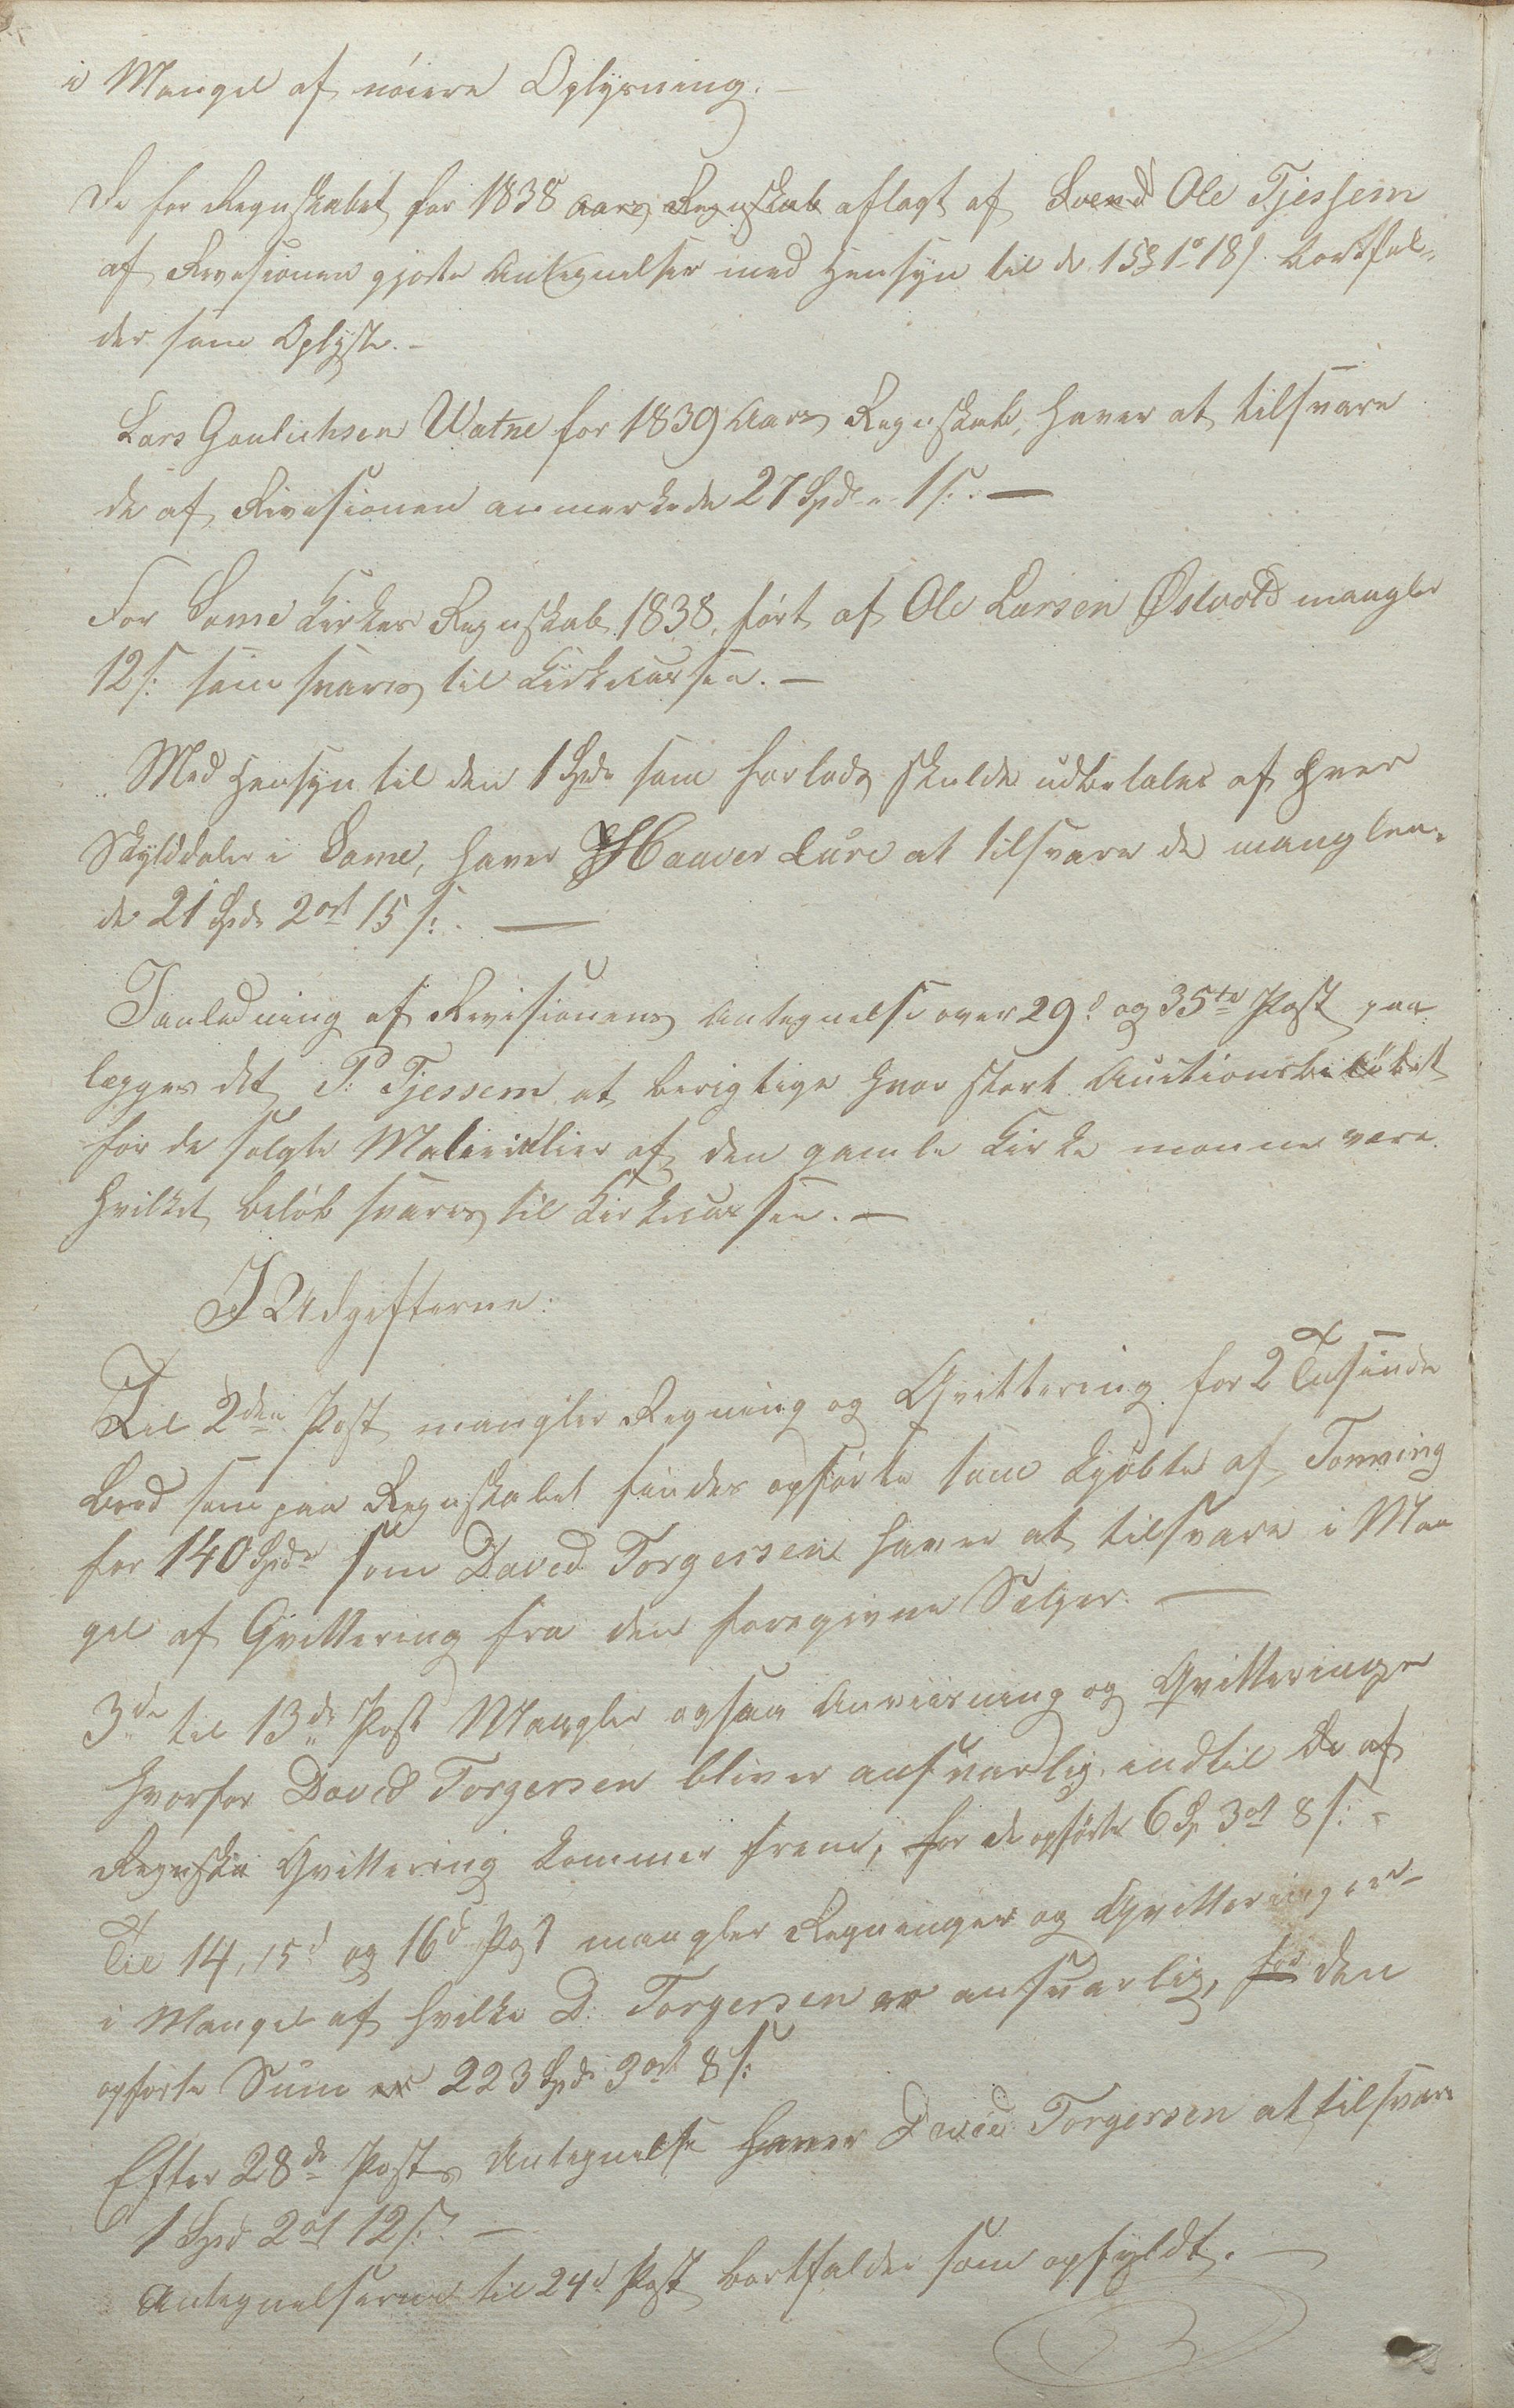 i Mangel af nöiere Oplysning. –
De for Regnskabet for 1838 Aars Regnskab aflagt af Svend Ole Tjessem
af Revisionen gjorte Antegnelser med Hensyn til de 15 1 18 s. bortfal-
der som Oplyste. –
Lars Gaulichsen Watne for 1839 Aars Regnskab, haver at tilsvare
de af Revisionen anmerkede 27 Spd " 1 s: –
For Some Kirkes Regnskab 1838, fört af Ole Larsen Østvold mangler
12 s: som svares til Kirkecassen. –
Med Hensyn til den 1 Spd som forlods skulde udbetales af hver
Skylddaler i Some, haver Haaver Lure at tilsvare de manglen-
de 21 Spd 2 ort 15 s: –
I anledning af Revisionens Antegnelse over 29d og 35te Post paa-
lægges det P: Tjessem at berigtige hvor stort Auctionsbelöbet
for de solgte Materialier af den gamle Kirke monne være
hvilket Belöb svares til Kirkecassen. –
I Udgifterne.
Til 2den Post mangler Regning og Qvittering for 2 Tusinde
Bord som paa Regnskabet findes opförte som kjöbte af Tonning
for 140 Spd som David Torgersen haver at tilsvare i Man
gel af Qvittering fra den foregivne Selger. –
3de til 13de Post Mangler ogsaa Anviisning og Qvitteringer
hvorfor David Torgersen bliver ansvarlig, indtil de af
Regnska Qvittering kommer frem, for de opförte 6 Sp 3 ort 8 s: –
Til 14, 15d og 16d Post mangler Regninger og Qvitteringer –
i Mangel af hvilke D: Torgersen er ansvarlig, for den
opförte Sum er 223 Spd 3 ort 8 s:
Efter 28de Posts Antegnelse haver David Torgersen at tilsvare
1 Spd 2 ort 12 s: –
Antegnelserne til 24d Post bortfalder som opfyldt. –